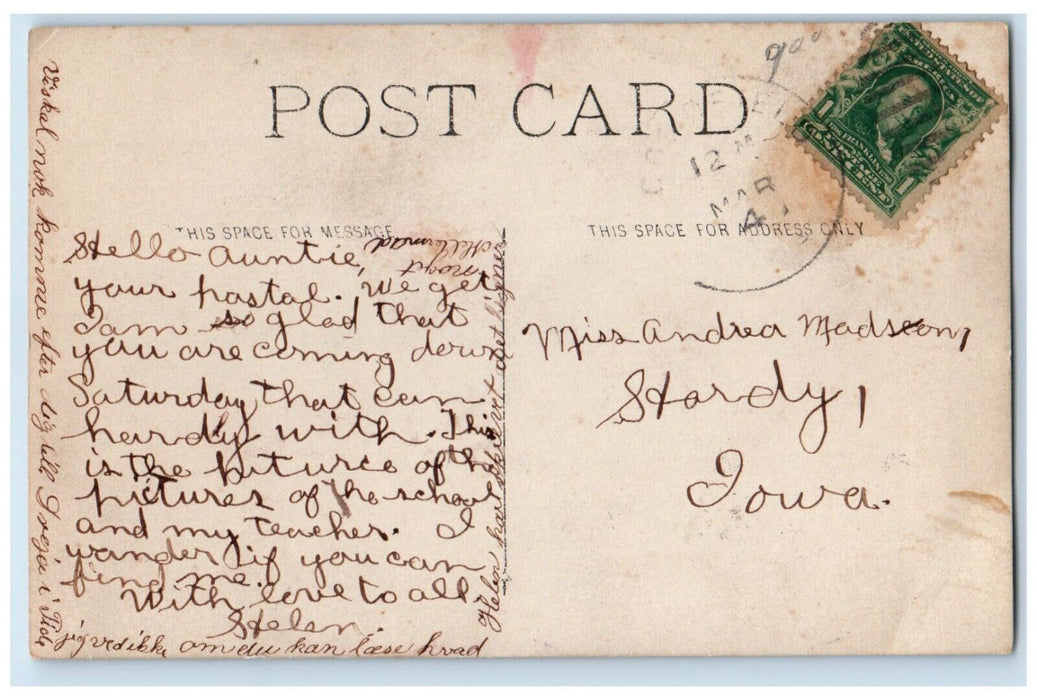 POST CARD
THIS SPACE FOR MESSAGE
THIS SPACE FOR ADDRESS ONLY
12 M
MAR
4
1
1
Hello Auntie,
modt
your postal. We get
I am so glad that
you are coming down
Saturday that can
hardly with. This
is the pituree of the
pictures of the school
and my teacher. I
wander if you can
fing me.
With love to all
Helen.
Miss Andrea Madseen,
Hardy,
Iowa.
Vi skal nok komme efter dig till i Tide
jig ved ikke om du kan læse hvad
Helen har skrevet det ligner